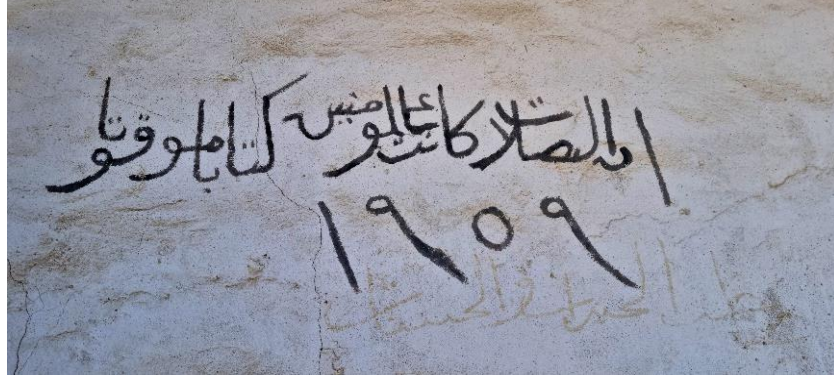 ان الصلات كانت عالمومنيين كتابا موقوتا
١٩٥٩